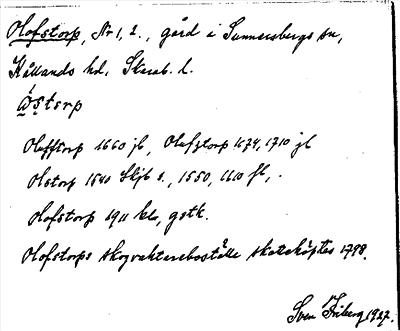 Olofstorp, Nr 1, 2., gård i Sunnersbergs sn,
Kållands hd, Skarab. l.
ώ̨s̨tɛrp
Olofftorp 1660 jb, Olofztorp 1674, 1710 jb
Olstorp 1540 Skjb 2., 1550, 1610 jb,.
Olofstorp 1911 kba, gstk.
Olofstorps skogvaktareboställe skatteköptes 1798.
Sven Friberg 1927.